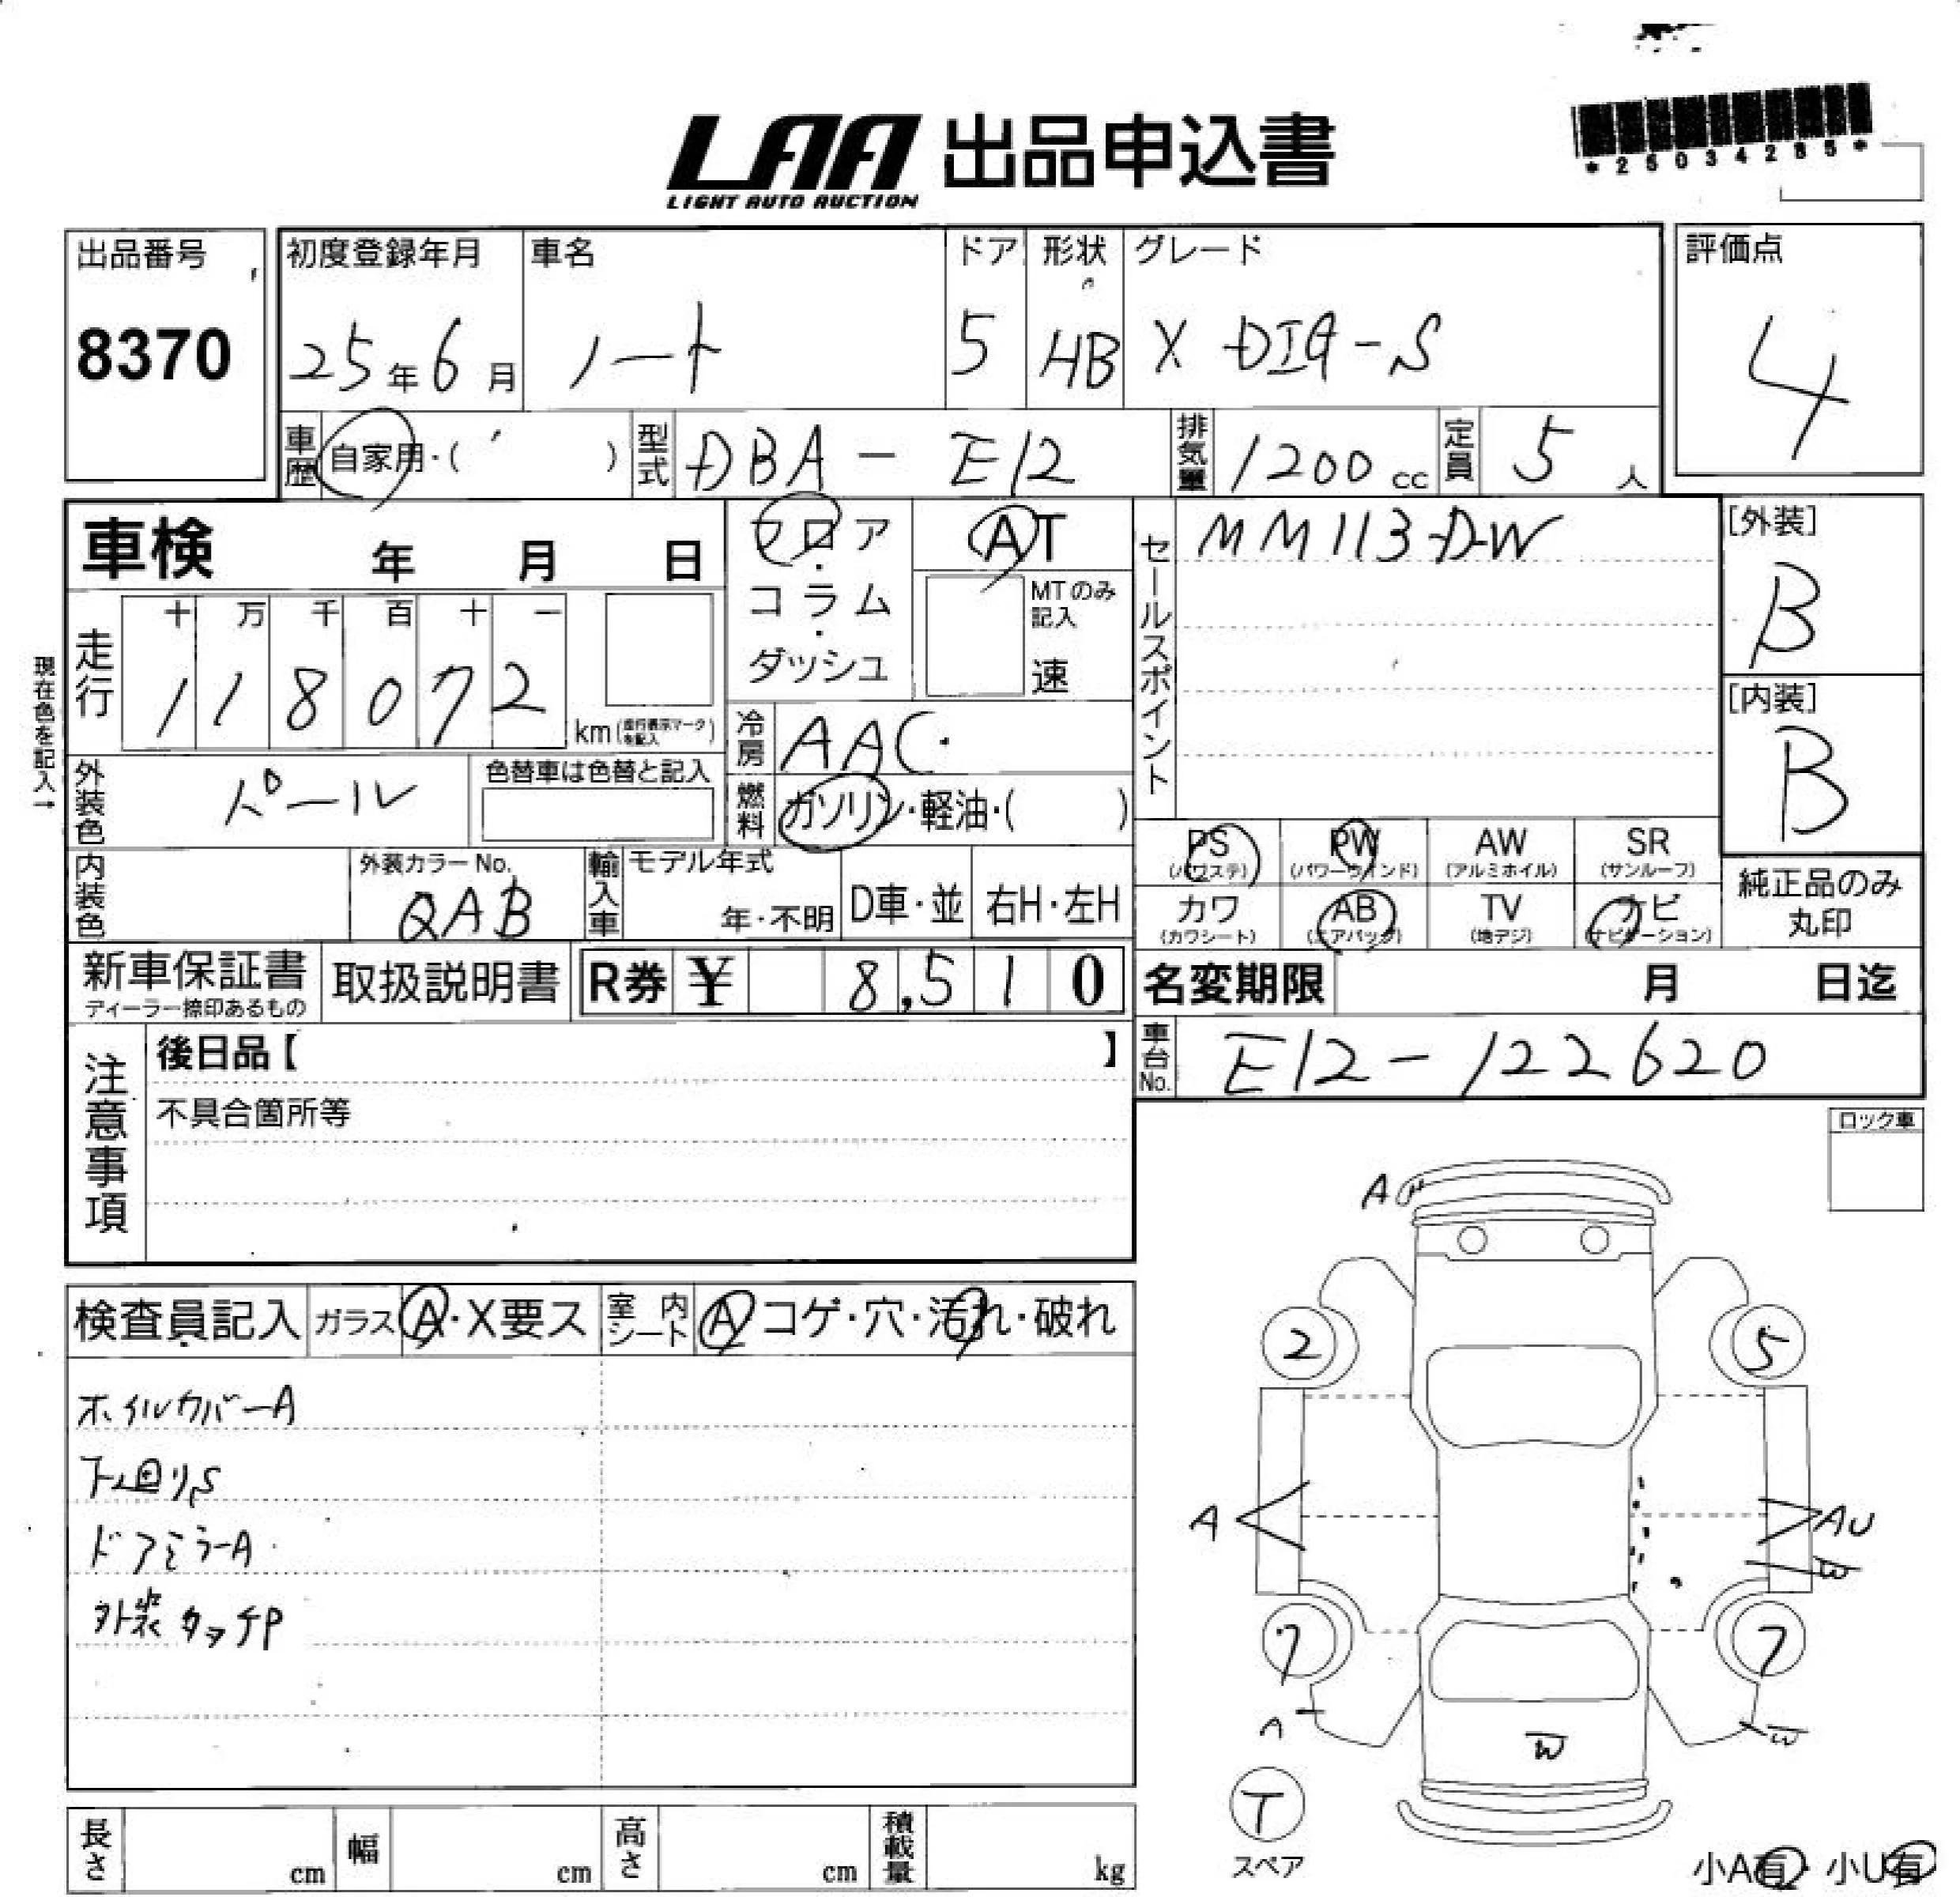 LAA 出品申込書
LIGHT AUTO AUCTION
*25034285*
出品番号
8370
初度登録年月
25年6月
車名
ノート
ドア
5
形状
HB
グレード
X DIG-S
評価点
4
車歴
自家用・( )
型式
DBA-E12
排気量
1200cc
定員
5人
車検 年 月 日
フロア・コラム・ダッシュ
AT
MTのみ記入
速
セールスポイント
MM113D-W
[外装]
B
[内装]
B
現在色を記入→
走行
十 万 千 百 十 一
1 1 8 0 7 2
km(走行表示マークを記入)
冷房
AAC
燃料
ガソリン・軽油・( )
外装色
パール
色替車は色替と記入
PS
(パワステ)
PW
(パワーウインド)
AW
(アルミホイル)
SR
(サンルーフ)
内装色
外装カラーNo.
QAB
輸入車
モデル年式
年・不明
D車・並
右H・左H
カワ
(カワシート)
AB
(エアバッグ)
TV
(地デジ)
ナビ
(ナビゲーション)
純正品のみ
丸印
新車保証書
ディーラー捺印あるもの
取扱説明書
R券 ¥ 8,510
名変期限 月 日迄
車台No.
E12-122620
注意事項
後日品【 】
不具合箇所等
ロック車
検査員記入
ガラス A・X要ス
室内シート A コゲ・穴・汚れ・破れ
ホイルカバーA
下廻りS
ドアミラーA
外装タッチP
A
2
5
A
AU
W
7
7
A
W
W
T
スペア
小A有・小U有
長さ cm
幅 cm
高さ cm
積載量 kg